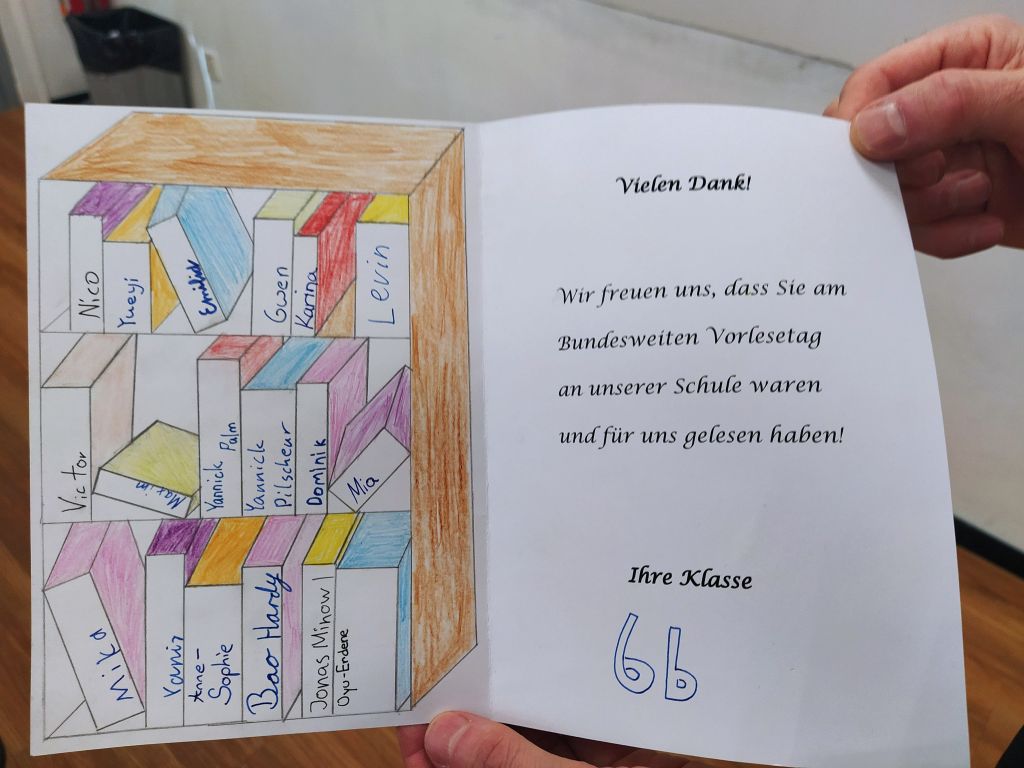 Nico
Yueyi
Emilian
Gwen
Karina
Levin
Victor
Maxim
Yannick
Palm
Yannick
Pilscheur
Dominik
Mia
Mika
Yanis
Anne-
Sophie
Bao Hardy
Jonas Minow
Oyu-Erdene
Vielen Dank!
Wir freuen uns, dass Sie am
Bundesweiten Vorlesetag
an unserer Schule waren
und für uns gelesen haben!
Ihre Klasse
6b